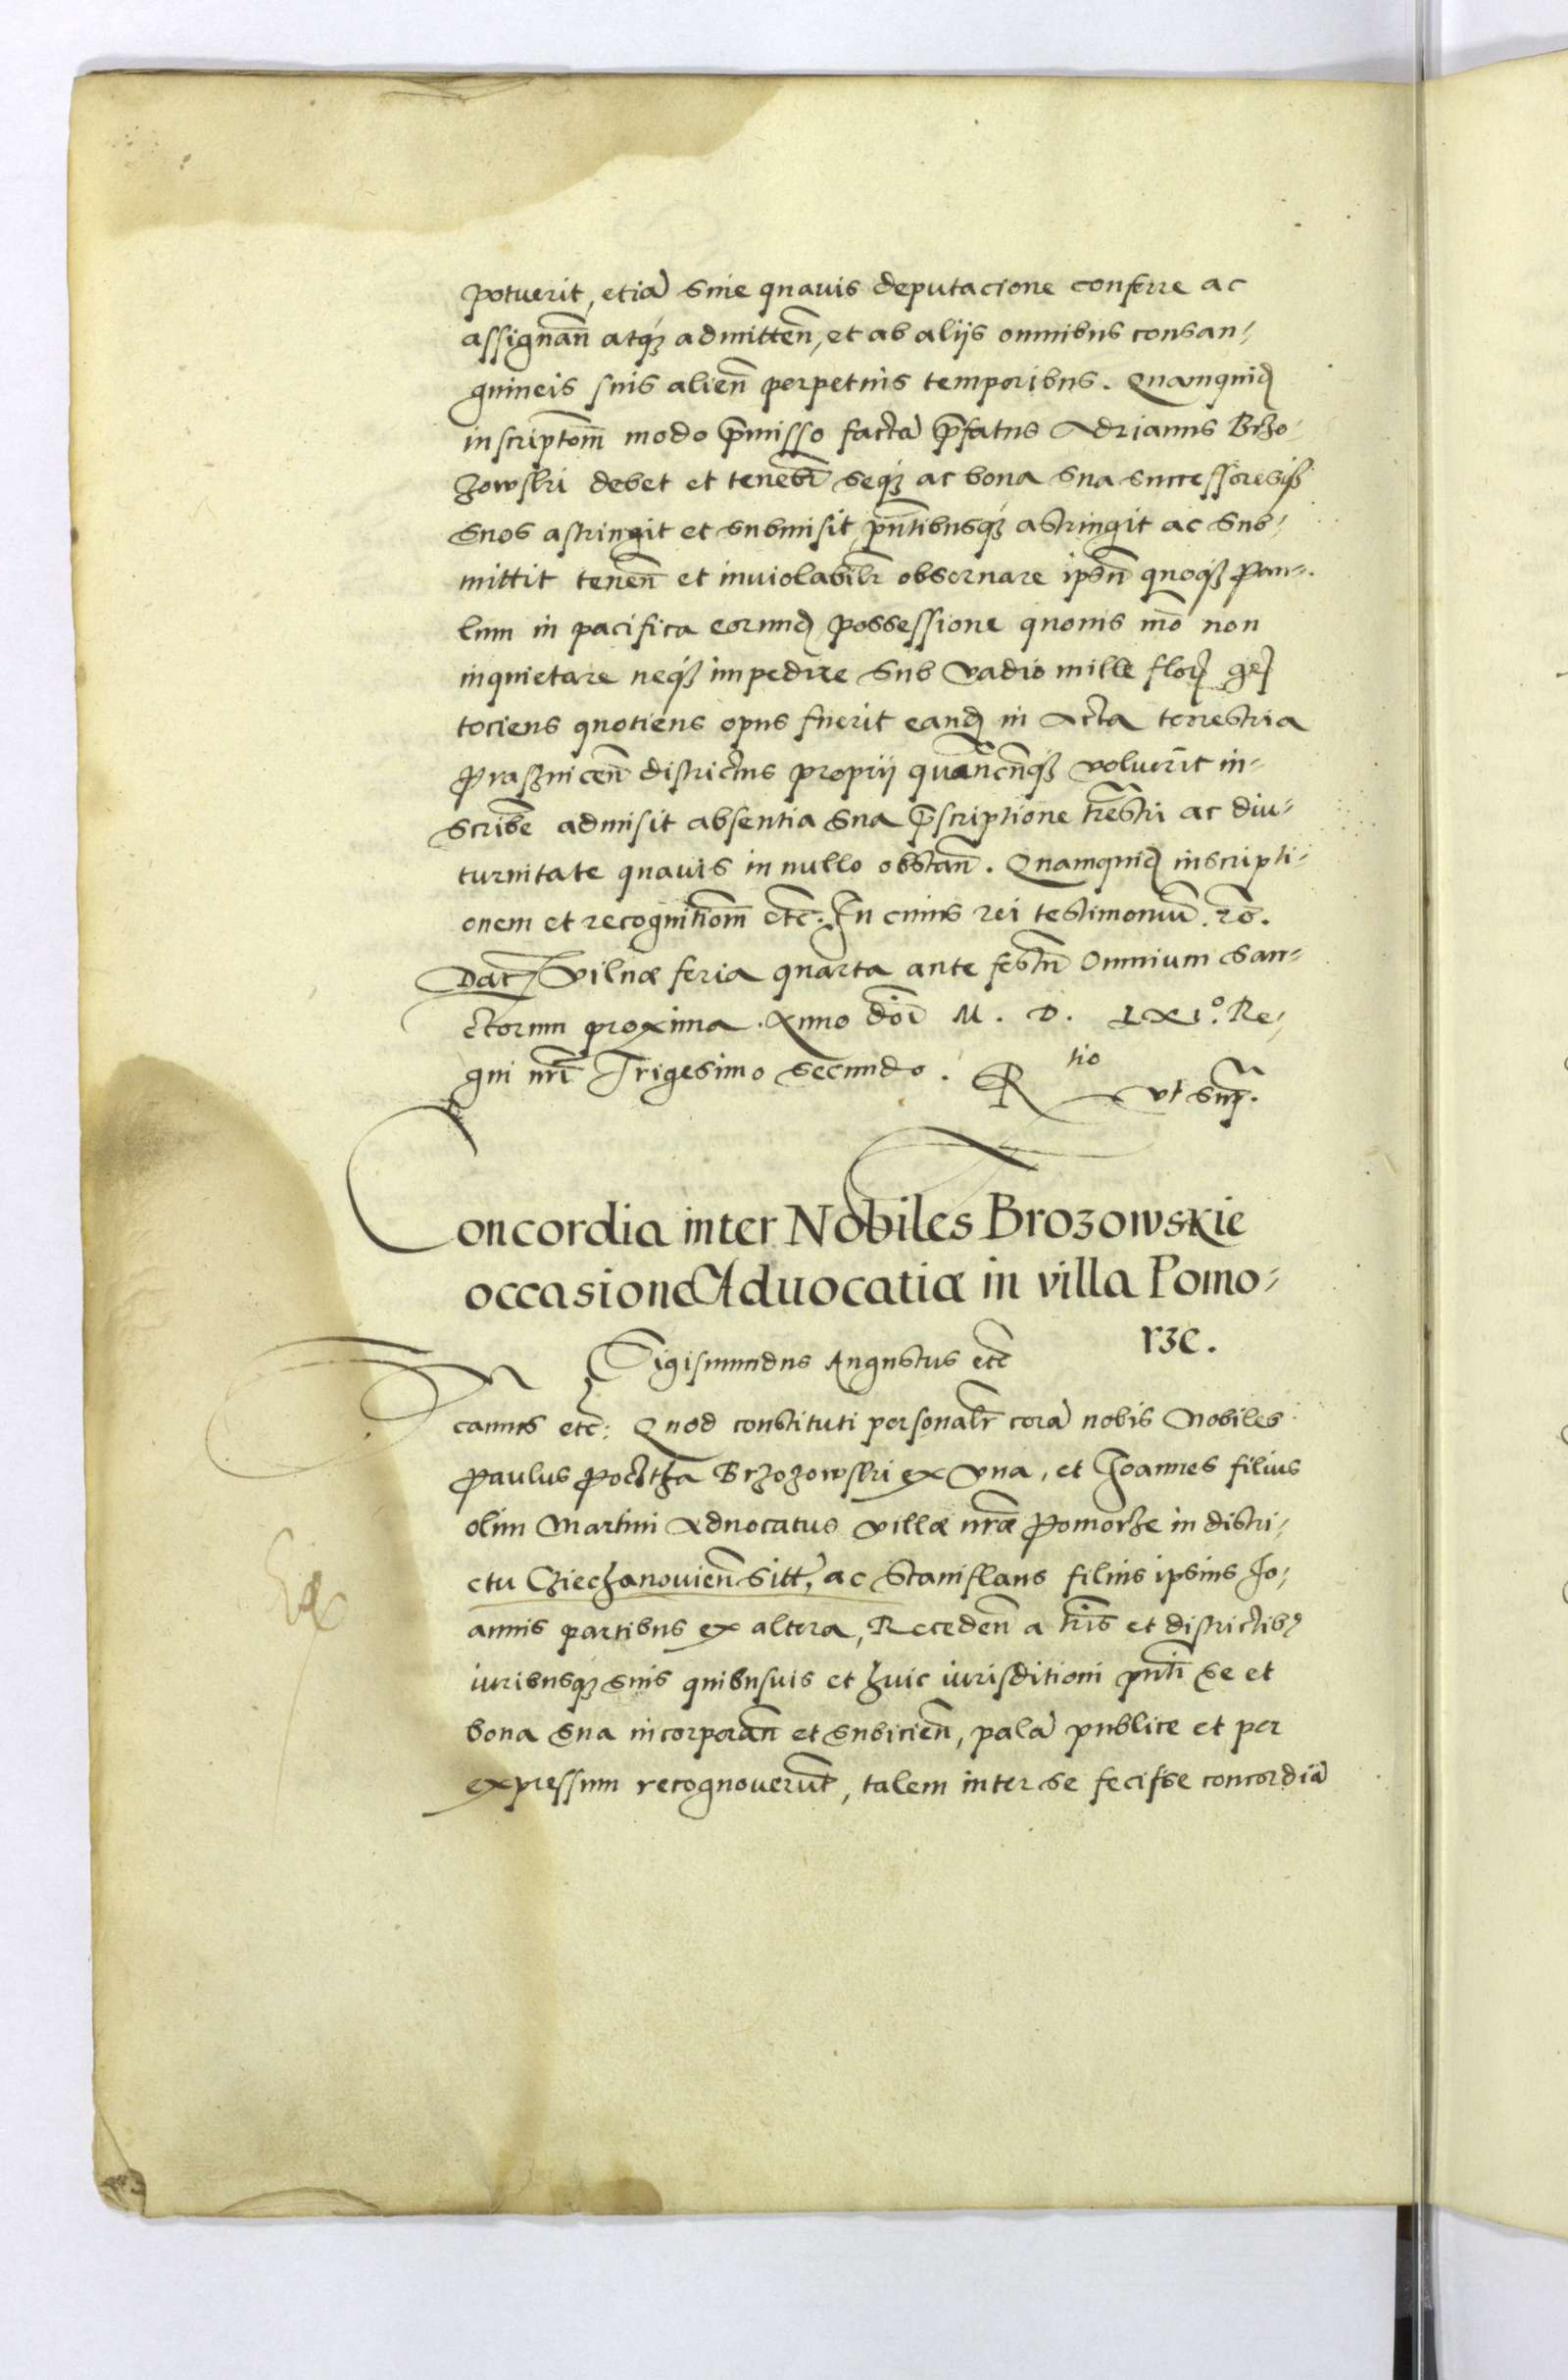 potuerit, etiā sine quauis deputacione conferre ac
assignan̄ atq₃ admitten̄, et ab alijs omnibus consan-
guineis suis alien̄ perpetuis temporibus. Quamquid̨
inscriptom̄ modo p̄misso factā p̄fatus Adrianus Brzo-
zowski debet et tenebī seq₃ ac bona sua successoresq₃
suos astringit et submisit, pn̄tibusq₃ astringit ac sub-
mittit tenen̄ et inuiolabilr̄ obseruare ipsū quoq₃ Pau-
lum in pacifica eorund̨ possessione quouis mō non
inquietare neq₃ impedire sub vadio mille flor̨ gr̨
tociens quotiens opus fuerit eand̨ in Acta terrestria
Praszniceñ districtus proprij quan̄cun̄q₃ voluerīt in-
scribe̅ admisit absentia sua p̄scriptione tr̄estri ac diu-
turnitate quauis in nullo obstan̄. Quamquid̨ inscripti-
onem et recognitiom̄ etc̄. In cuius rei testimoniū. rō.
Dat̄ Vilnæ feria quarta ante festū Omnium San-
ctorum proxima. Anno dōi M. D. LXIº. Re-
gni nrī Trigesimo secundo. R tio
vt sup̄.
Concordia inter Nobiles Brozowskie
occasione Aduocatiæ in villa Pomo-
rze.
Sigismundus Augustus etc̄
camus etc̄: Quod constituti personalr̄ corā nobis Nobiles
Paulus Brzozowski ex vna, et Joannes filius
olim Martini Aduocatus villæ nr̄æ Pomorze in distri-
ctu Cziechanouien̄ sitt̄, ac Stanislaus filius ipsius Jo-
annis partibus ex altera, Receden̄ a tr̄is et districtib₉
iuribusq₃ suis quibusuis et huic iurisditioni pn̄ti se et
bona sua incorporan̄ et subicien̄, palā publice et per
expressum recognouerūt, talem inter se fecisse concordiā